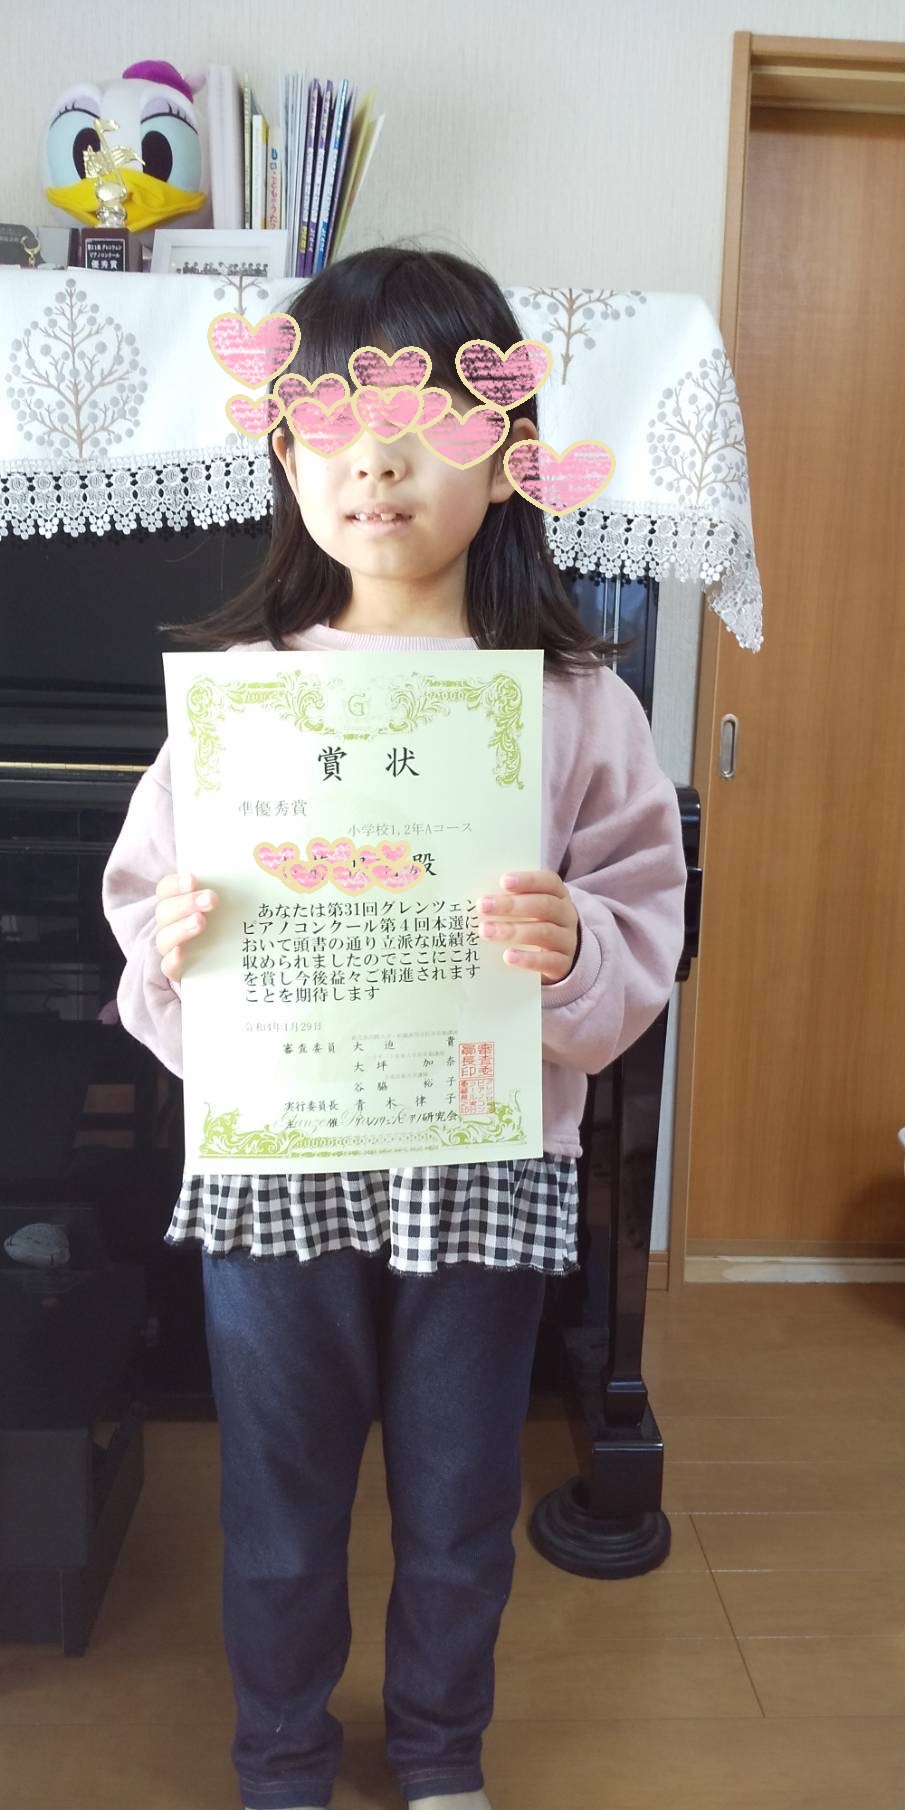 こどものうた
第31回 グレンツェン
ピアノコンクール
優秀賞
G
賞 状
準優秀賞
小学校1,2年Aコース
殿
あなたは第31回グレンツェン
ピアノコンクール第4回本選に
おいて頭書の通り立派な成績を
収められましたのでここにこれ
を賞し今後益々ご精進されます
ことを期待します
令和4年1月29日
審査委員 大 迫 貴
大 坪 加 奈
谷 脇 裕 子
実行委員長 青 木 律 子
主 催 グレンツェンピアノ研究会